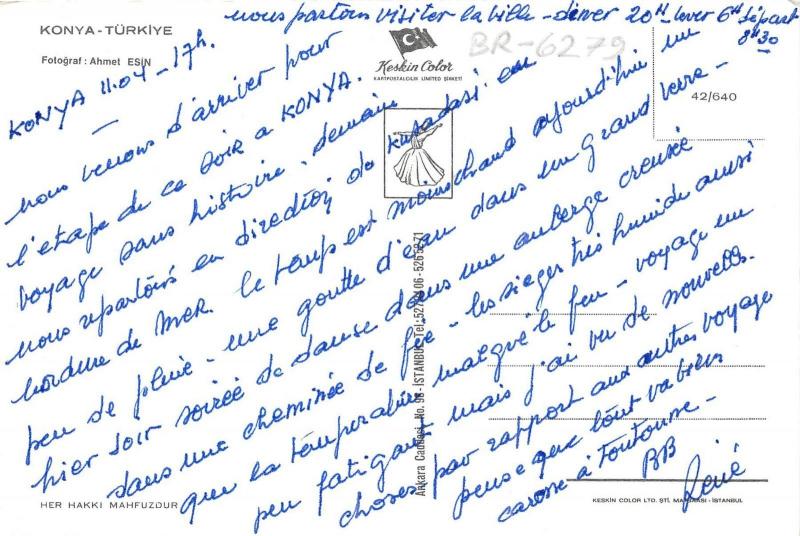 nous partons visiter la ville - diner 20H lever 6H départ
8H30
KONYA-TÜRKİYE
Fotoğraf: Ahmet ESİN
Keskin Color
KARTPOSTALCILIK LIMITED ŞIRKETI
BR-6279
42/640
KONYA 11.04 - 17h.
nous venons d'arriver pour
l'etape de ce soir a KONYA.
voyage sans histoire. demain
nous repartons en direction de Kusadasi en
bordure de mer. le temps est moins chaud aujourd'hui un
peu de pluie - une goutte d'eau dans un grand verre -
hier soir soirée de danse dans une auberge creusée
dans une cheminée de fée - les sieges très humide aussi
que la température malgré le feu - voyage un
peu fatigant mais j'ai vu de nouvelles
choses par rapport aux autres voyage
pense que tout va bien
à Toutoune -
BB
René
Ankara Caddesi, No. 98 - İSTANBUL Tel:
HER HAKKI MAHFUZDUR
KESKIN COLOR LTD. ŞTİ. MATBAASI - İSTANBUL